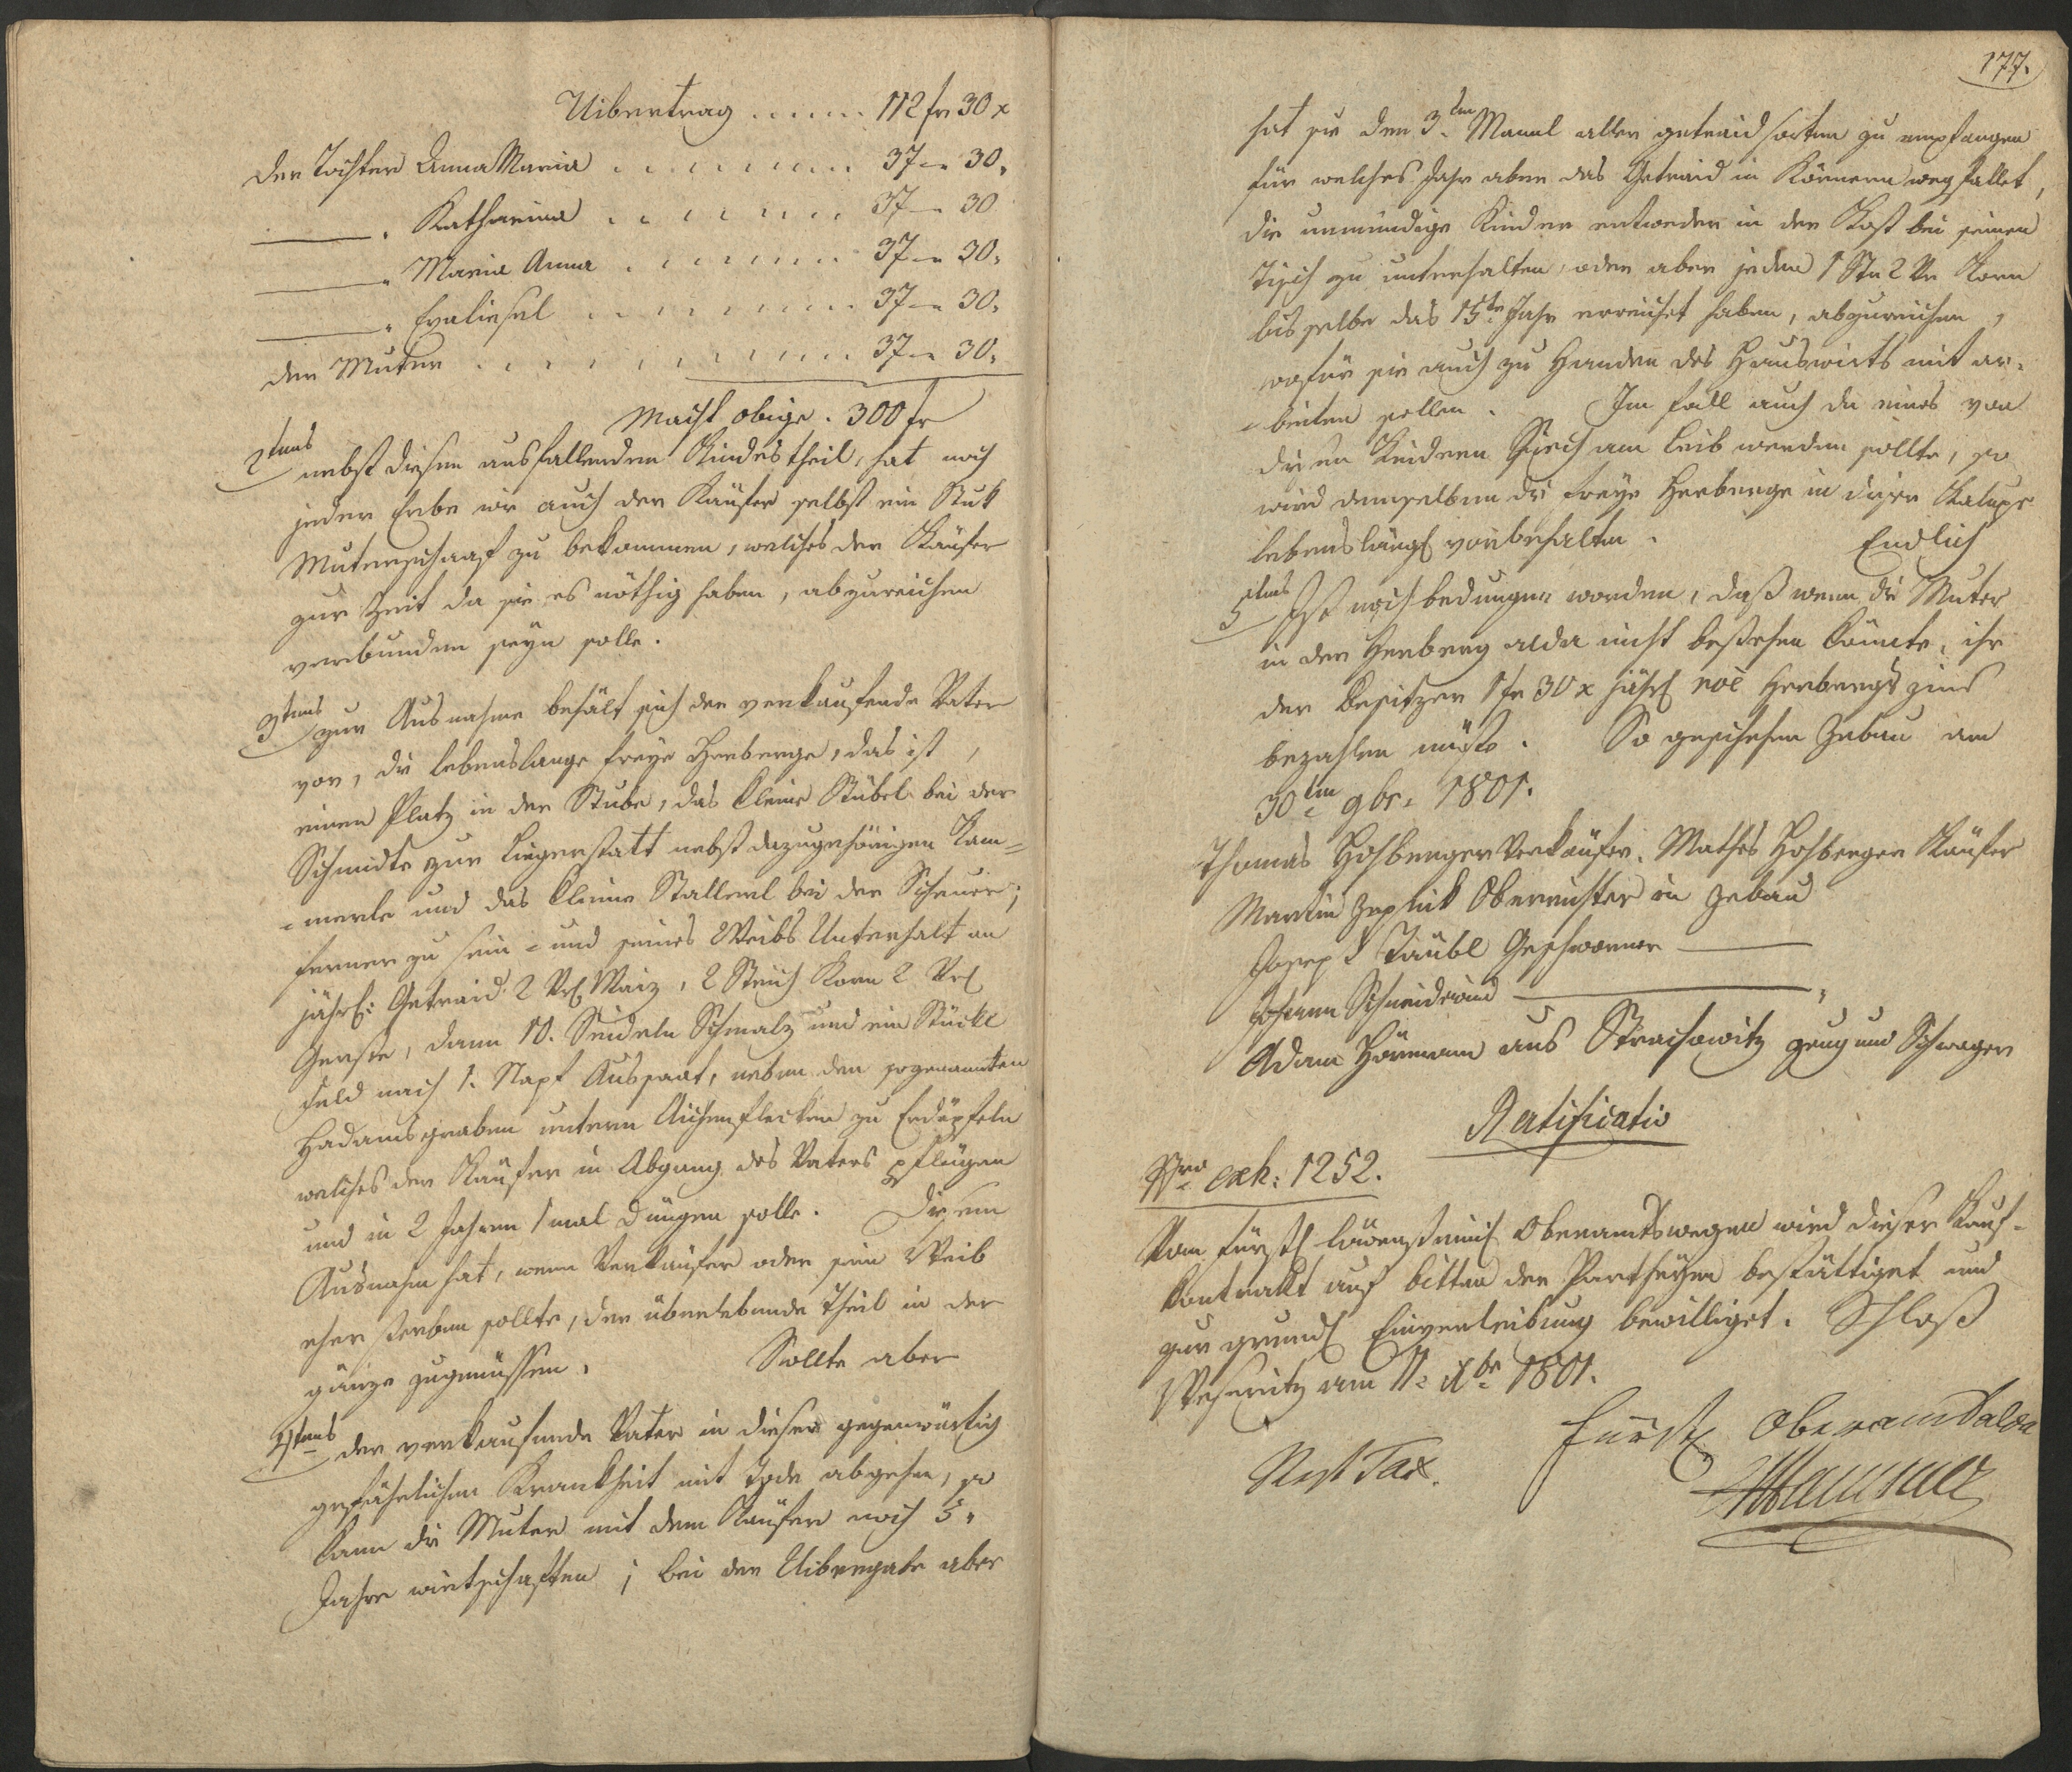 Uibertrag ...... 112 fr 30 x
der Tochter Anna Maria ......... 37 - 30.
——— " Katharina ........ 37 - 30
——— " Maria Anna ........ 37 - 30.
——— " Evaliesel ......... 37 - 30.
der Muter ............ 37 - 30.
Macht obige . 300 fr
2tens nebst diesen ausfallenden Kindestheil, hat noch
jeder Erbe wie auch der Käufer selbst ein Stuk
Muterschaaf zu bekommen, welches der Käufer
zur Zeit da sie es nöthig haben, abzureichen
verbunden seyn solle.
3tens zur Ausnahme behält sich der verkaufende Vater
vor, die lebenslange freye Herberge, das ist,
einen Platz in der Stube, das kleine Stübel bei der
Schmidte zur Liegerstatt nebst dazugehörigen Kam=
=merle und das kleine Stallerl bei der Scheuer;
ferner zu sein = und seines Weibs Unterhalt an
jährl: Getraid 2 Vrl Waiz, 2 Strich Korn 2 Vrl
Gerste, dann 10. Seideln Schmalz und ein Stückl
Feld nach 1. Napf Aussaat, neben den sogenannten
Hadamsgraben untern Aichenflecken zu Erdäpfeln
welches der Käufer in Abgang des Vaters pflügen
und in 2 Jahren 1 mal düngen solle. Diesem
Ausnahm hat, wenn Verkäufer oder sein Weib
eher sterben sollte, der überlebende Theil in der
gänze zugenüssen. Sollte aber
4tens der verkaufende Vater in dieser gegenwärtig
gefährlichen Krankheit mit Tode abgehen, so
kann die Muter mit dem Käufer noch 3.
Jahre wirtschaften; bei der Uibergabe aber
177.
hat sie den 3.ten Mandl aller getraidsorten zu empfangen
für welches Jahr aber das Getraid in Körnern wegfallet,
die unmündige Kinder entweder in der Kost bei seinen
Tisch zu unterhalten, oder aber jeden 1 Str 2 Vr Korn
bis selbe das 15te Jahr erreichet haben, abzureichen,
wofür sie auch zu Handen des Hauswirts mit ar=
=beiten sollen. Im fall auch da eines von
diesen Kindern Siech am Leib werden sollte, so
wird demselben die freye Herberge in dieser Kaluppe
lebenslängl vorbehalten. Endlich
5tens Ist noch bedungen worden, daß wenn die Muter
in der Herberg alda nicht bestehen könnte, ihr
der Besitzer 1 fr 30 x jährl noe Herbergszins
bezahlen müste. So geschehen Zebau am
30ten 9br: 1801.
Thomas Hohberger Verkäufer. Mathes Hohberger Käufer
Martin Zeplick Oberrichter in Zebau
Joseph Täubl Geschworner ———
Johann Schneidwind ———————— "
Adam Hörmann aus Strachowitz zeug und Schwager
Ratificatio
Nro exh: 1252.
Vom fürstl löwensteinil Oberamtswegen wird dieser Kauf=
Contrakt auf bitten der Partheyen bestättiget und
zur grundl Einverleibung bewilliget. Schloß
Weseritz am 11: Xbr 1801.
Fürstl Oberamt alda
Rest Tax.